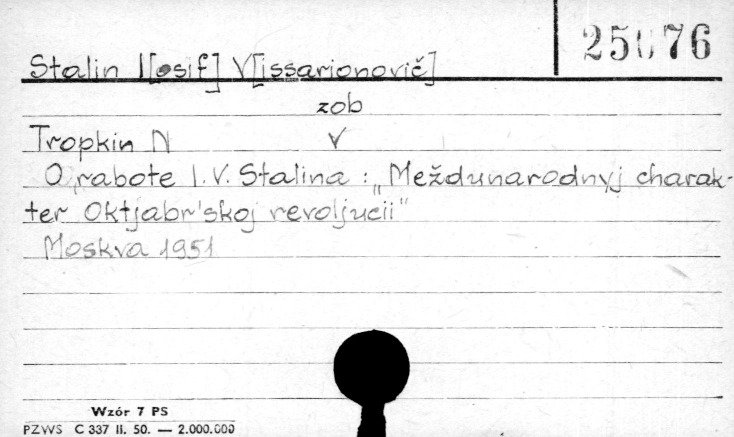 Stalin I[osif] V[issarionovič]
zob
Tropkin N v
O rabote I. V. Stalina : „Meždunarodnyj charak-
ter Oktjabr'skoj revoljucii"
Moskva 1951
Wzór 7 PS
PZWS C 337 II. 50. — 2.000.000